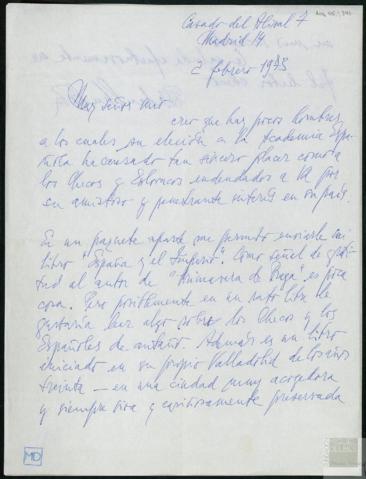 Casado del Alisal 7
Madrid 14
2 febrero 1973
Muy señor mío
creo que hay pocos hombres
a los cuales su elección a la Academia Espa-
ñola ha causado tan sincero placer como a
los Checos y Eslovacos endeudados a Vd por
su amistoso y penetrante interés en su país.
En un paquete aparte me permito enviarle mi
libro "España y el Imperio". Como señal de grati-
tud al autor de "Primavera de Praga" es poca
cosa. Pero posiblemente en un rato libre le
gustaría leer algo sobre los Checos y los
Españoles de antaño. Además es un libro
iniciado en su propio Valladolid de los años
treinta — en una ciudad muy acogedora
y siempre viva y cariñosamente preservada
MD